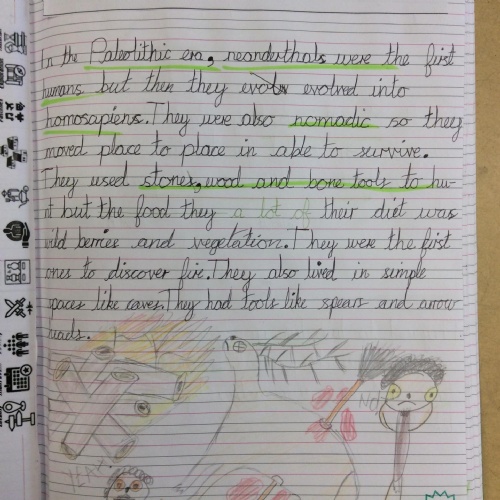 In the Paleolithic era, neanderthals were the first
humans but then they evolv evolved into
homosapiens. They were also nomadic so they
moved place to place in able to survive.
They used stones, wood and bone tools to hu-
nt but the food they a lot of their diet was
wild berries and vegetation. They were the first
ones to discover fire. They also lived in simple
spaces like caves. They had tools like spears and arrow
heads.
NO
YEAH